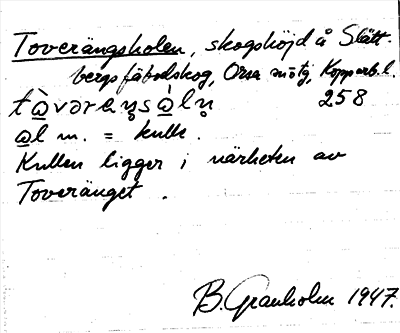 Toverängsholen, skogshöjd å Slätt-
bergs fäbodskog, Orsa mötg, Kopparb. l.
258
al m. = kulle.
Kullen ligger i närheten av
Toveränget.
B. Granholm 1947.